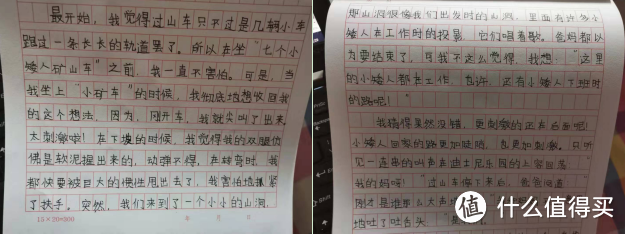 最开始，我觉得过山车只不过是几辆小车
跑过一条长长的轨道罢了。所以在坐“七个小
矮人矿山车”之前，我一直不害怕。可是，当
我坐上“小矿车”的时候，我彻底地想收回我
的这个想法，因为，刚开车，我就尖叫了出来，
太刺激啦！在下坡的时候，我觉得我的双腿仿
佛是软泥捏出来的，动弹不得，在转弯时，我
都快要被巨大的惯性甩出去了，我害怕地抓紧
了扶手。突然，我们来到了一个小小的山洞，
15×20=300 年 月 日
那山洞很像我们出发时的山洞，里面有许多小
矮人在工作时的投影，它们唱着歌。爸妈都以
为要结束了，可我不这么觉得，我想：“这里
的小矮人都在工作，也许，还有小矮人下班时
的路呢！”
我猜得果然没错，更刺激的还在后面呢！
小矮人回家的路更加陡峭，也更加刺激。只听
见一连串的叫声在迪士尼乐园的上空回荡
“我的妈呀！”过山车停下来后，爸爸问道：“
刚才是谁那么大声
地吐了吐舌头
什么值得买